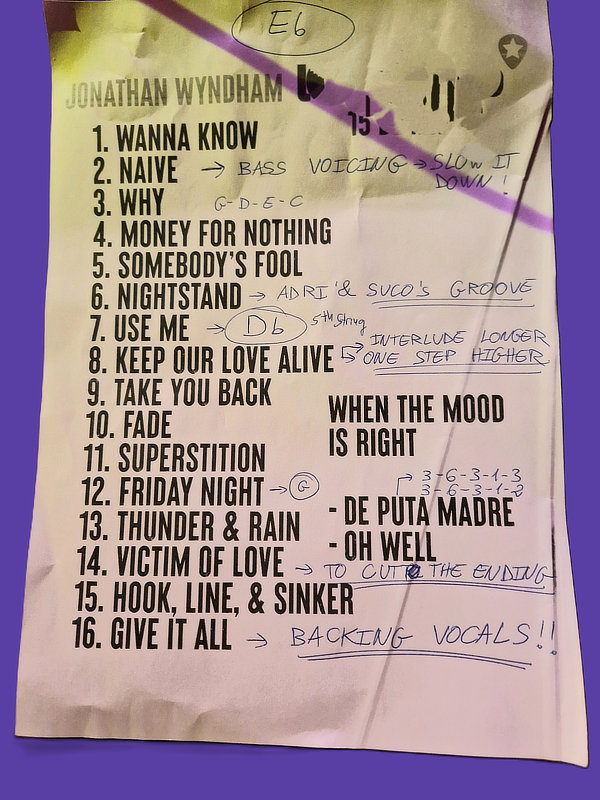 Eb
JONATHAN WYNDHAM
15
1. WANNA KNOW
2. NAIVE → BASS VOICING → SLOW IT DOWN!
3. WHY G-D-E-C
4. MONEY FOR NOTHING
5. SOMEBODY'S FOOL
6. NIGHTSTAND → ADRI'& SUCO'S GROOVE
7. USE ME → Db 5th string
8. KEEP OUR LOVE ALIVE → INTERLUDE LONGER
→ ONE STEP HIGHER
9. TAKE YOU BACK
10. FADE
11. SUPERSTITION
12. FRIDAY NIGHT → G
13. THUNDER & RAIN
14. VICTIM OF LOVE → TO CUT THE ENDING
15. HOOK, LINE, & SINKER
16. GIVE IT ALL → BACKING VOCALS!!
WHEN THE MOOD
IS RIGHT
→ 3-6-3-1-3
3-6-3-1-2
- DE PUTA MADRE
- OH WELL